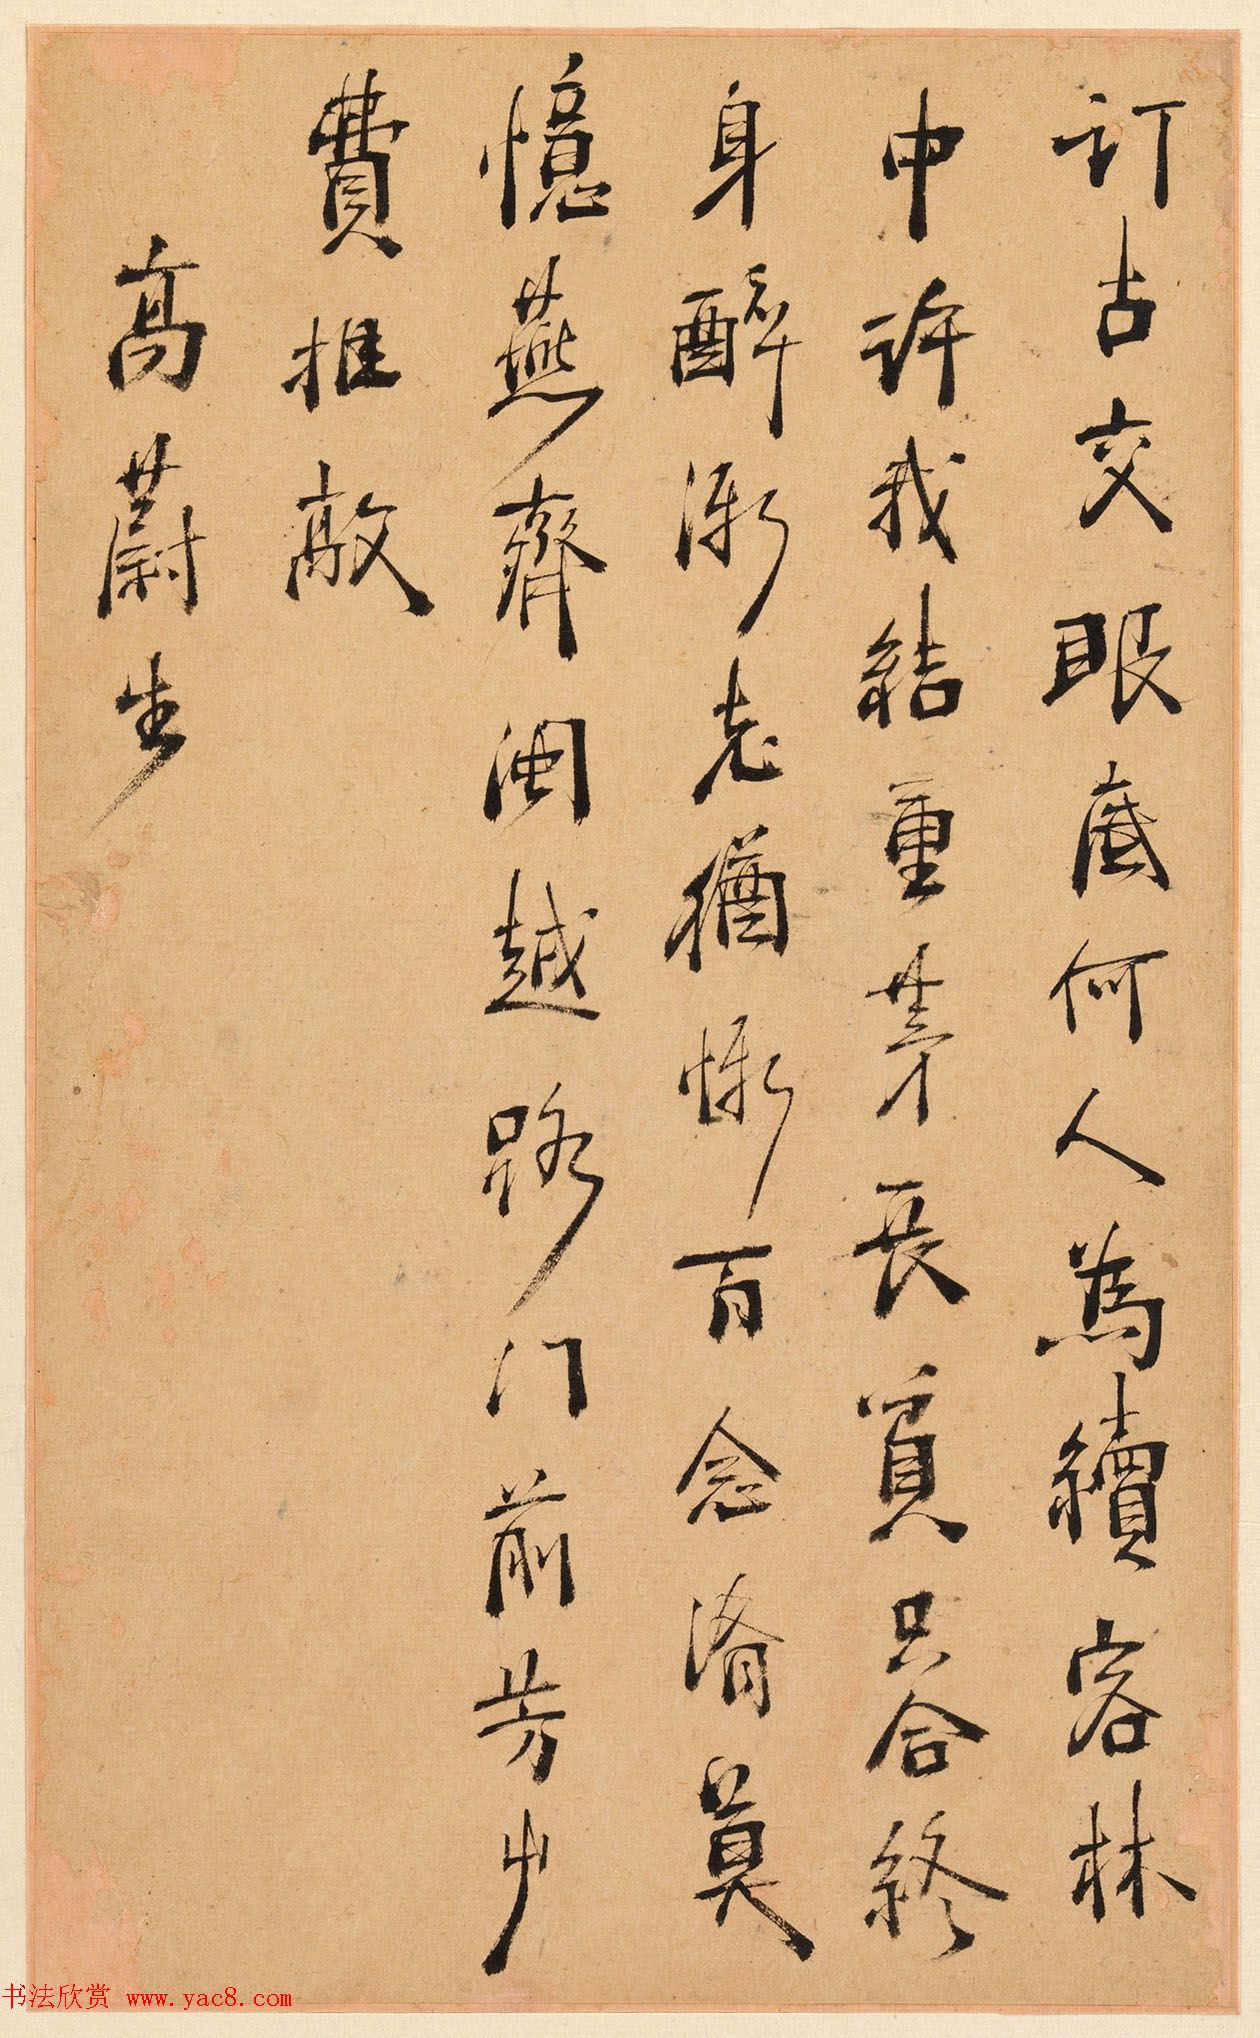 訂古交眼底何人為續客林
中許我結重茅長貧只合終
身醉漸老猶慚百念淆莫
憶燕齊閩越路门前芳艸
費推敲
高蔚生
书法欣赏 www.yac8.com